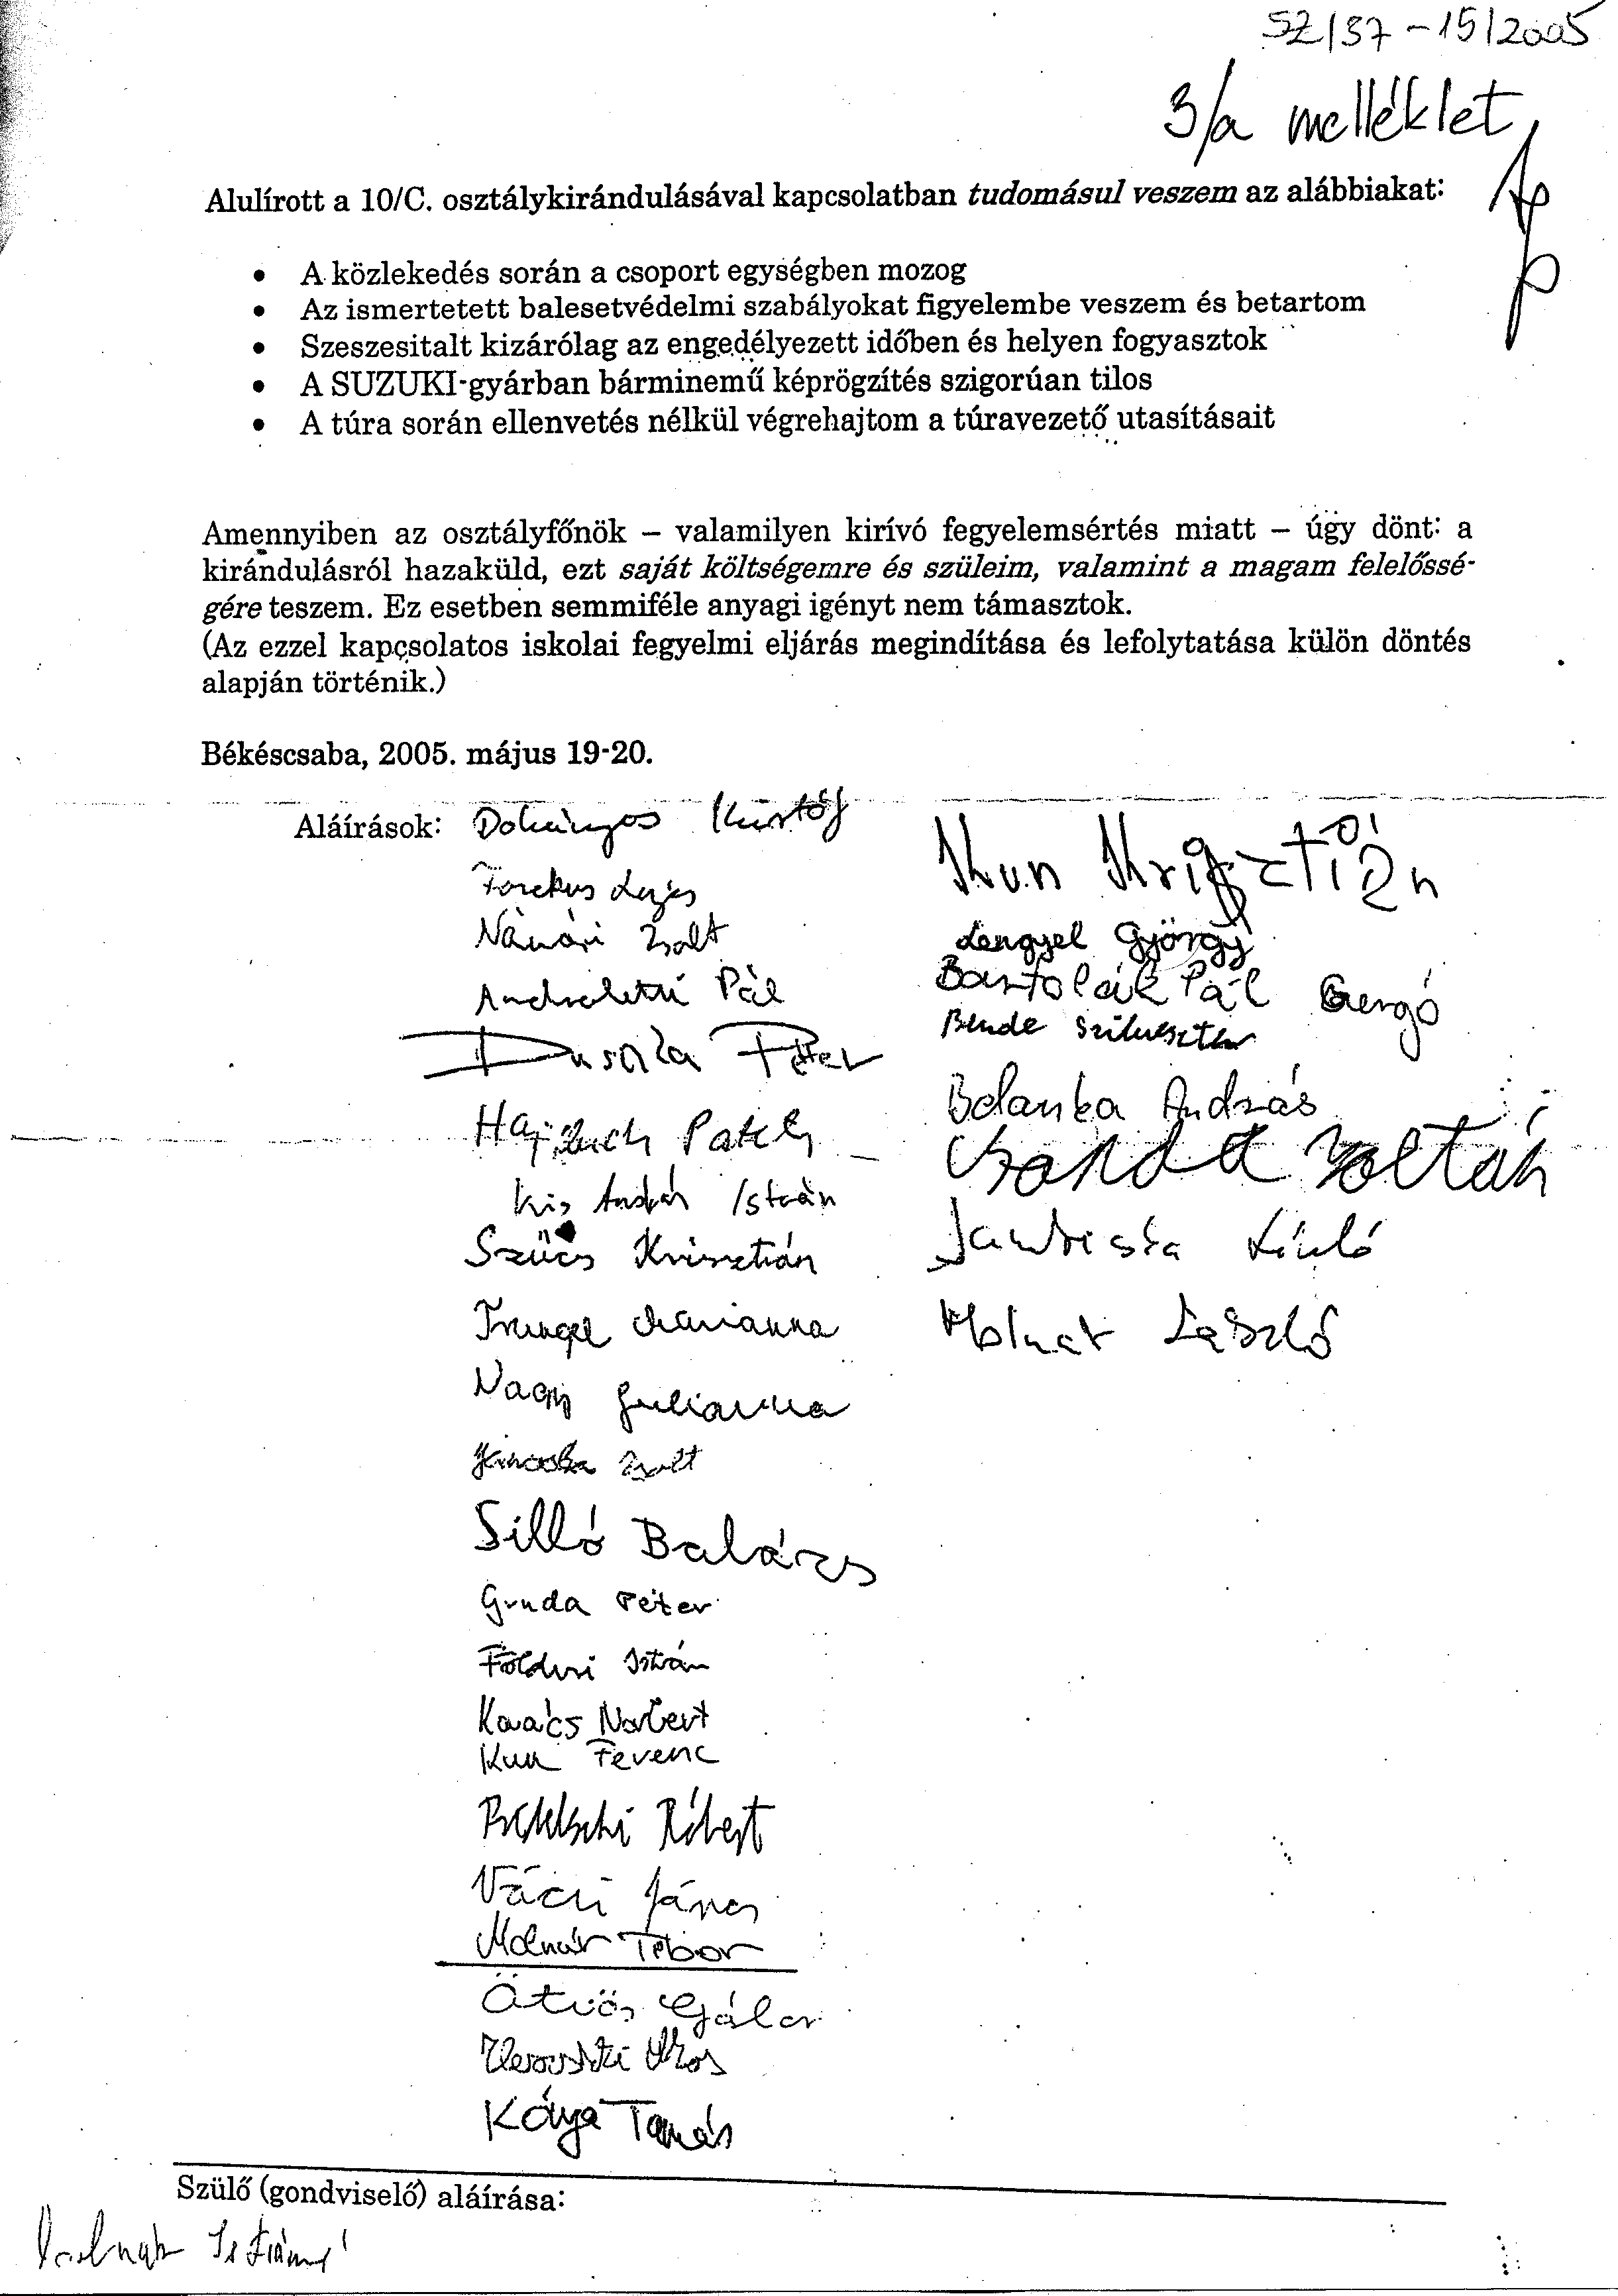 SZ/37-15/2005
3/a melléklet
Alulírott a 10/C. osztálykirándulásával kapcsolatban tudomásul veszem az alábbiakat:
• A közlekedés során a csoport egységben mozog
• Az ismertetett balesetvédelmi szabályokat figyelembe veszem és betartom
• Szeszesitalt kizárólag az engedélyezett időben és helyen fogyasztok
• A SUZUKI-gyárban bárminemű képrögzítés szigorúan tilos
• A túra során ellenvetés nélkül végrehajtom a túravezető utasításait
Amennyiben az osztályfőnök – valamilyen kirívó fegyelemsértés miatt – úgy dönt: a
kirándulásról hazaküld, ezt saját költségemre és szüleim, valamint a magam felelőssé-
gére teszem. Ez esetben semmiféle anyagi igényt nem támasztok.
(Az ezzel kapcsolatos iskolai fegyelmi eljárás megindítása és lefolytatása külön döntés
alapján történik.)
Békéscsaba, 2005. május 19-20.
Aláírások: Dohányos Kristóf
Lajos
Nánási Zsolt
Pál
Péter
Patrik
Kis András István
Szűcs Krisztián
Marianna
Nagy Julianna
Zsolt
Silló Balázs
Gruda Péter
Földesi István
Kovács Norbert
Kun Ferenc
Róbert
Váczi János
Molnár Tibor
Ötvös Gábor
Ákos
Kónya Tamás
Kun Krisztián
Lengyel György
Bartolák Pál Gergő
Bende Szilveszter
Belanka András
Zoltán
László
Molnár László
Szülő (gondviselő) aláírása: